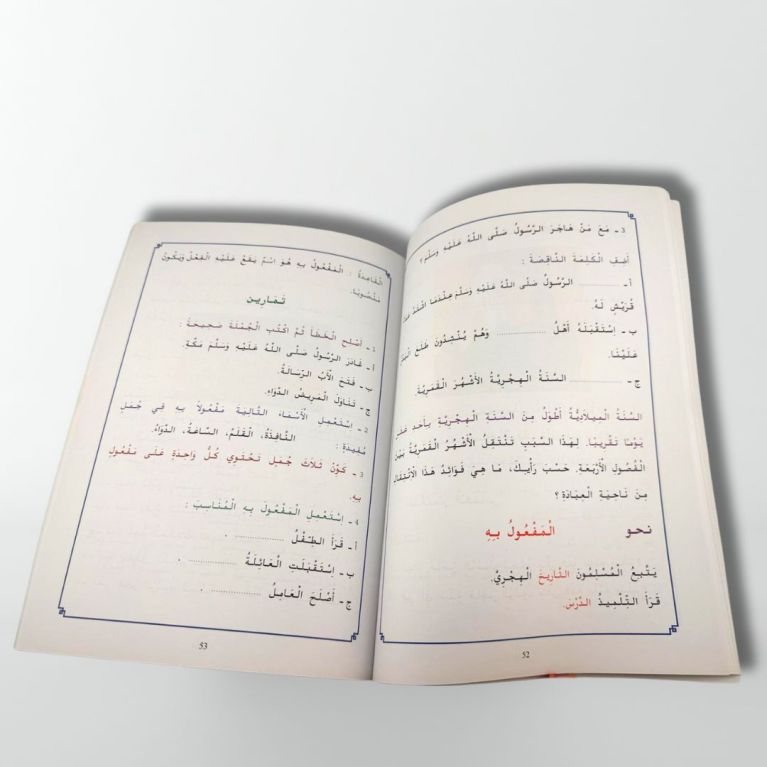 3 - مَعَ مَنْ هَاجَرَ الرَّسُولُ صَلَّى اللَّهُ عَلَيْهِ وَسَلَّمَ ؟
أَضِفِ الْكَلِمَةَ النَّاقِصَةَ :
أ - ............ الرَّسُولُ صَلَّى اللَّهُ عَلَيْهِ وَسَلَّمَ عِنْدَمَا اشْتَدَّ
قُرَيْشٍ لَهُ.
ب - اِسْتَقْبَلَهُ أَهْلُ ............ وَهُمْ يُنْشِدُونَ طَلَعَ الْبَدْرُ
عَلَيْنَا.
ج - ............ السَّنَةُ الْهِجْرِيَّةُ الْأَشْهُرَ الْقَمَرِيَّةَ.
السَّنَةُ الْمِيلَادِيَّةُ أَطْوَلُ مِنَ السَّنَةِ الْهِجْرِيَّةِ بِأَحَدَ عَشَرَ
يَوْمًا تَقْرِيبًا. لِهَذَا السَّبَبِ تَنْتَقِلُ الْأَشْهُرُ الْقَمَرِيَّةُ بَيْنَ
الْفُصُولِ الْأَرْبَعَةِ. حَسَبَ رَأْيِكَ، مَا هِيَ فَوَائِدُ هَذَا الْاِنْتِقَالِ
مِنْ نَاحِيَةِ الْعِبَادَةِ ؟
نحو الْمَفْعُولُ بِهِ
يَتَّبِعُ الْمُسْلِمُونَ التَّارِيخَ الْهِجْرِيَّ.
قَرَأَ التِّلْمِيذُ الدَّرْسَ.
52
الْقَاعِدَةُ : الْمَفْعُولُ بِهِ هُوَ اسْمٌ يَقَعُ عَلَيْهِ الْفِعْلُ وَيَكُونُ
مَنْصُوبًا.
تَمَارِين
1 - أَصْلِحِ الْخَطَأَ ثُمَّ اكْتُبِ الْجُمْلَةَ صَحِيحَةً :
أ - غَادَرَ الرَّسُولُ صَلَّى اللَّهُ عَلَيْهِ وَسَلَّمَ مَكَّةُ.
ب - فَتَحَ الْأَبُ الرِّسَالَةُ.
ج - تَنَاوَلَ الْمَرِيضُ الدَّوَاءِ.
2 - اِسْتَعْمِلِ الْأَسْمَاءَ التَّالِيَةَ مَفْعُولاً بِهِ فِي جُمَلٍ
مُفِيدَةٍ : النَّافِذَةُ، الْقَلَمُ، السَّاعَةُ، الدَّوَاءُ.
3 - كَوِّنْ ثَلَاثَ جُمَلٍ تَحْتَوِي كُلُّ وَاحِدَةٍ عَلَى مَفْعُولٍ
بِهِ.
4 - اِسْتَعْمِلِ الْمَفْعُولَ بِهِ الْمُنَاسِبَ :
أ - قَرَأَ الطِّفْلُ ............ .
ب - اِسْتَقْبَلَتِ الْعَائِلَةُ ............ .
ج - أَصْلَحَ الْعَامِلُ ............ .
53